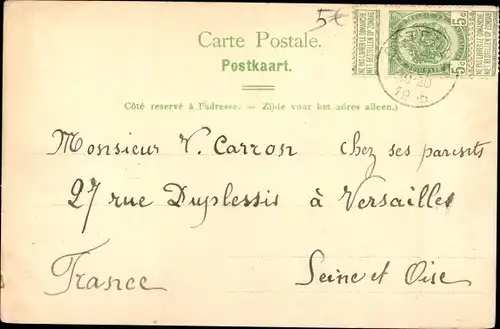 5€
Carte Postale.
Postkaart.
Côté reservé à l'adresse. - Zijde voor het adres alleen.
NE PAS LIVRER LE DIMANCHE
NIET BESTELLEN OP ZONDAG
5 c
5 c
Monsieur V. Carron chez ses parents
27 rue Duplessis à Versailles
France Seine et Oise